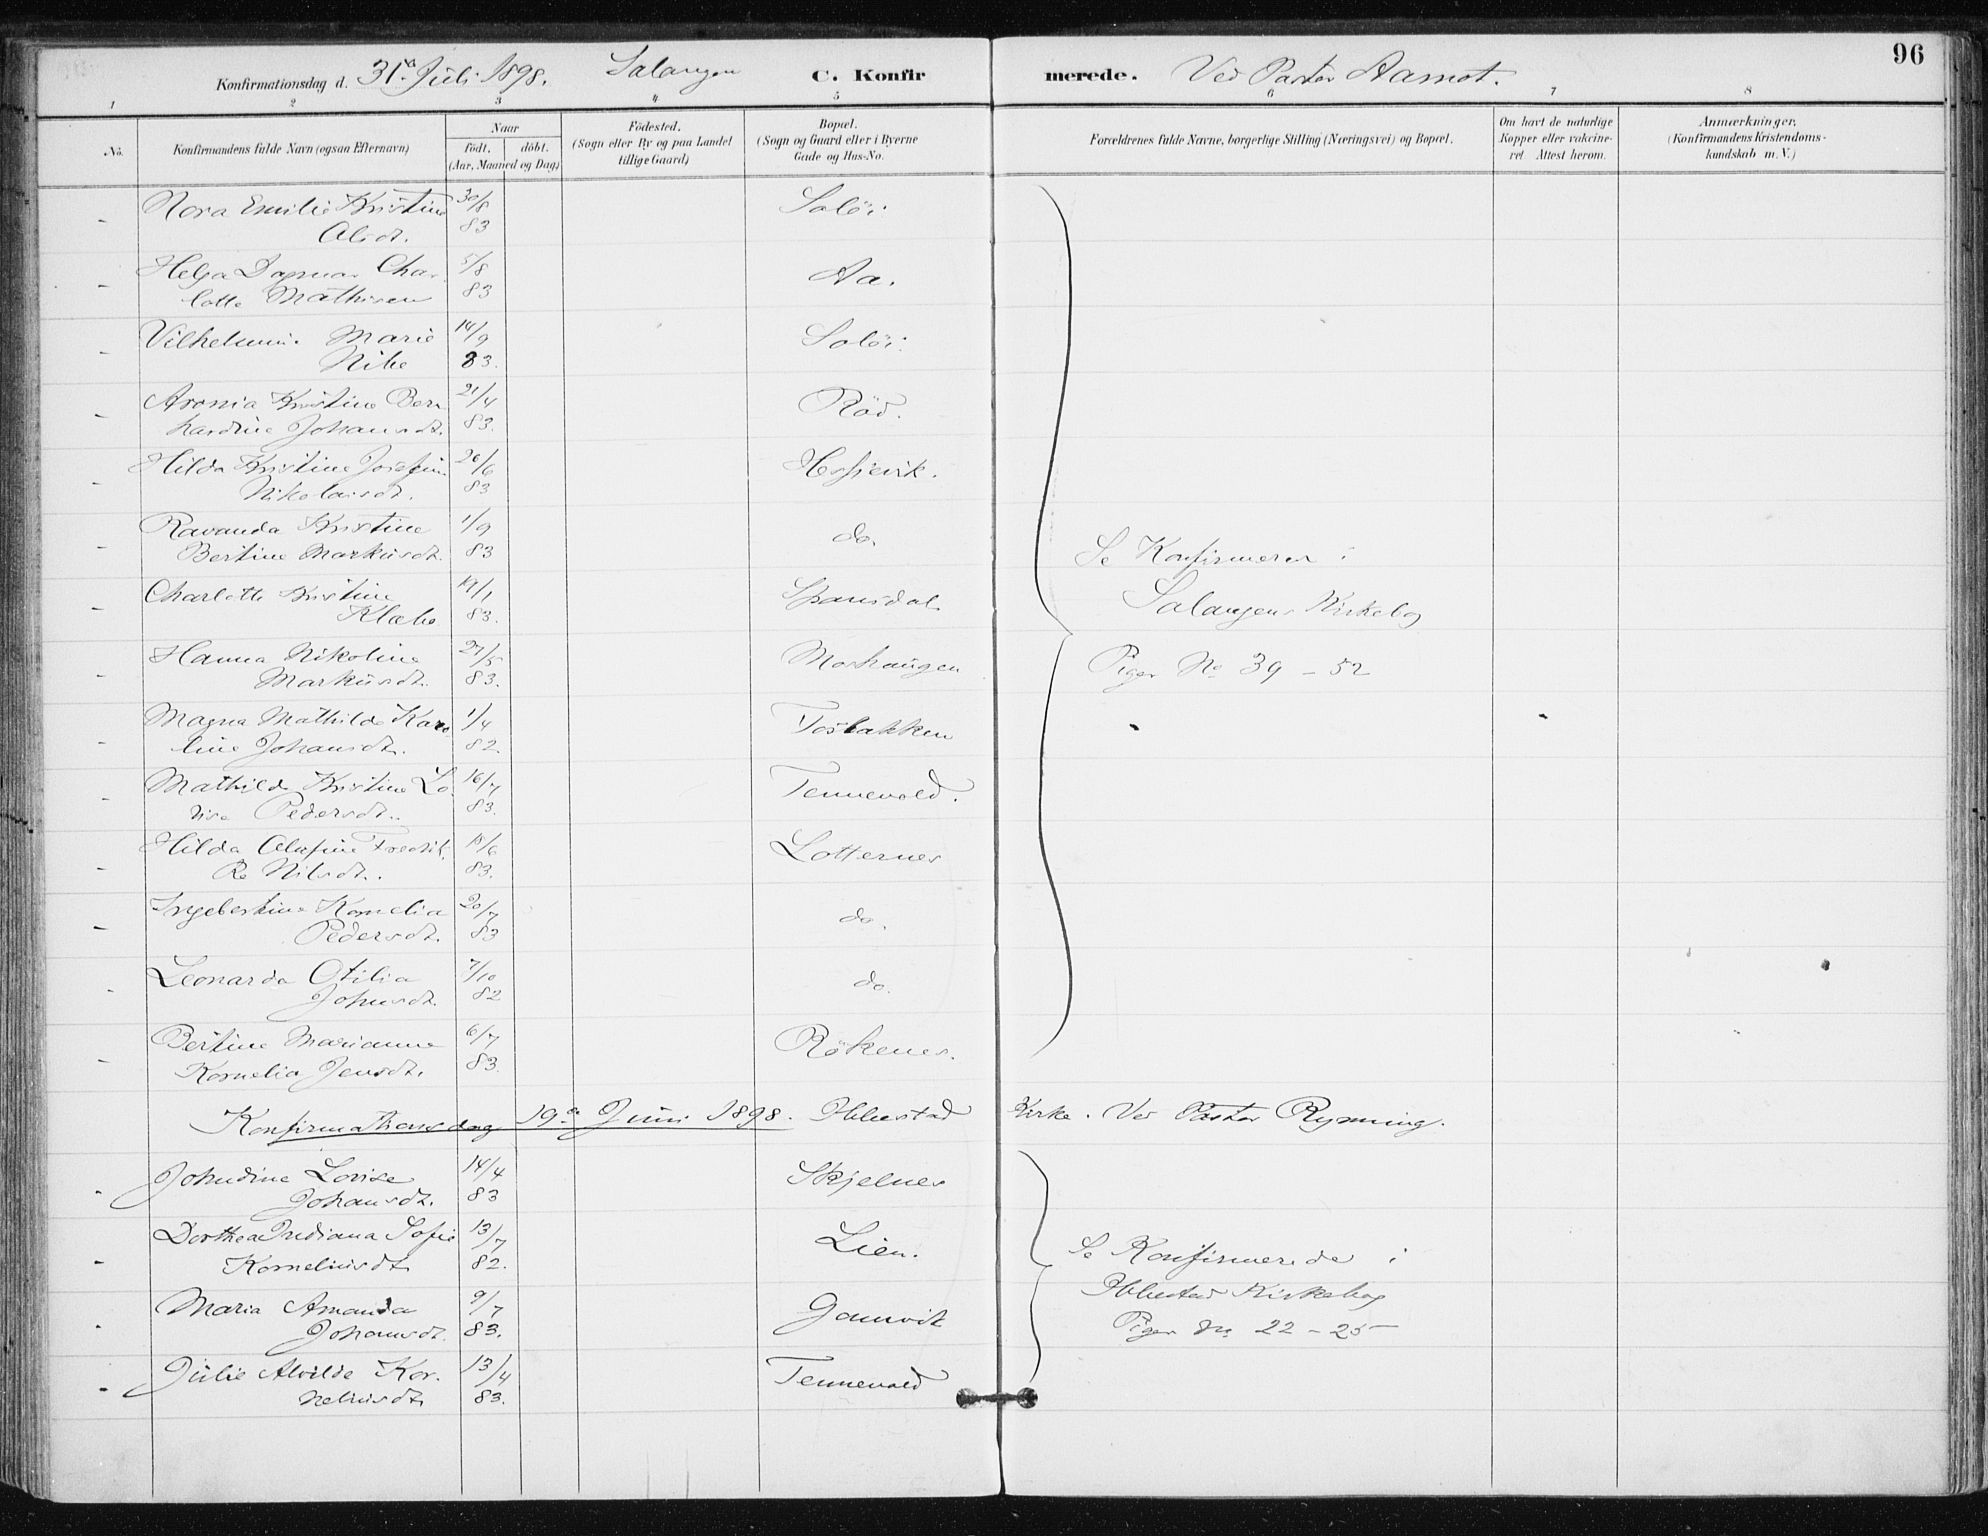 96
Konfirmationsdag d. 31te Juli 1898. Salangen C. Konfirmerede. Ved Pastor Aamot.
1 2 3 4 5 6 7 8
No.
Konfirmandens fulde Navn (ogsaa Efternavn)
Naar
födt. döbt.
(Aar, Maaned og Dag)
Födested.
(Sogn eller By og paa Landet
tillige Gaard)
Bopæl.
(Sogn og Gaard eller i Byerne
Gade og Hus-No.
Forældrenes fulde Navne, borgerlige Stilling (Næringsvei) og Bopæl.
Om havt de naturlige
Kopper eller vakcine-
ret Attest herom.
Anmærkninger,
(Konfirmandens Kristendoms-
kundskab m. V.)
- Nora Emilie Kristine 30/8 Salöi
Olsdt. 83
- Helga Dagmar Char- 5/8 Aa.
lotte Mathisen 83
- Vilhelmine Marie 14/9 Salöi
Nibe 83.
- Aronia Kristine Bern 21/4 Röd.
hardine Johansdt. 83.
- Hilda Kristine Josefine 26/6
Nikolaisdt. 83
- Ravanda Kristine 1/9 do.
Bertine Markusdt. 83
- Charlotte Kristine Spansdal
Klæbo 83.
- Hanna Nikoline 27/5 Moshaugen
Markusdt. 83.
Se Konfirmerede i
Salangens Kirkebog
Piger No 39 - 52
- Magna Mathilde Karo 1/4
line Johansdt. 82.
- Mathilde Kristine Lo- 16/7 Tennevold.
visa Pedersdt. 83.
- Hilda Olufine Fredrik- Lotternes
ke Nilsdt. 83.
- Ingebertine Kornelia 20/7 do.
Pedersdt. 83
- Leonarda Otilia 7/10 do.
Johnsdt. 82
- Bertine Marianne 6/7 Rökenes.
Kornelia Jensdt. 83.
Konfirmationsdag 19de Juni 1898. Ibbestad Kirke. Ved Pastor Rynning.
- Johndine Lovise 14/4 Skjelnes
Johansdt. 83
- Dorthea Indiana Sofie 13/7 Lien.
Korneliusdt. 82.
- Maria Amanda 9/7 Gamvik
Johansdt. 83.
- Julie Alvilde Kor- 13/4 Tennevold
neliusdt. 83.
Se Konfirmerede i
Ibbestad Kirkebog
Piger No 22 - 25